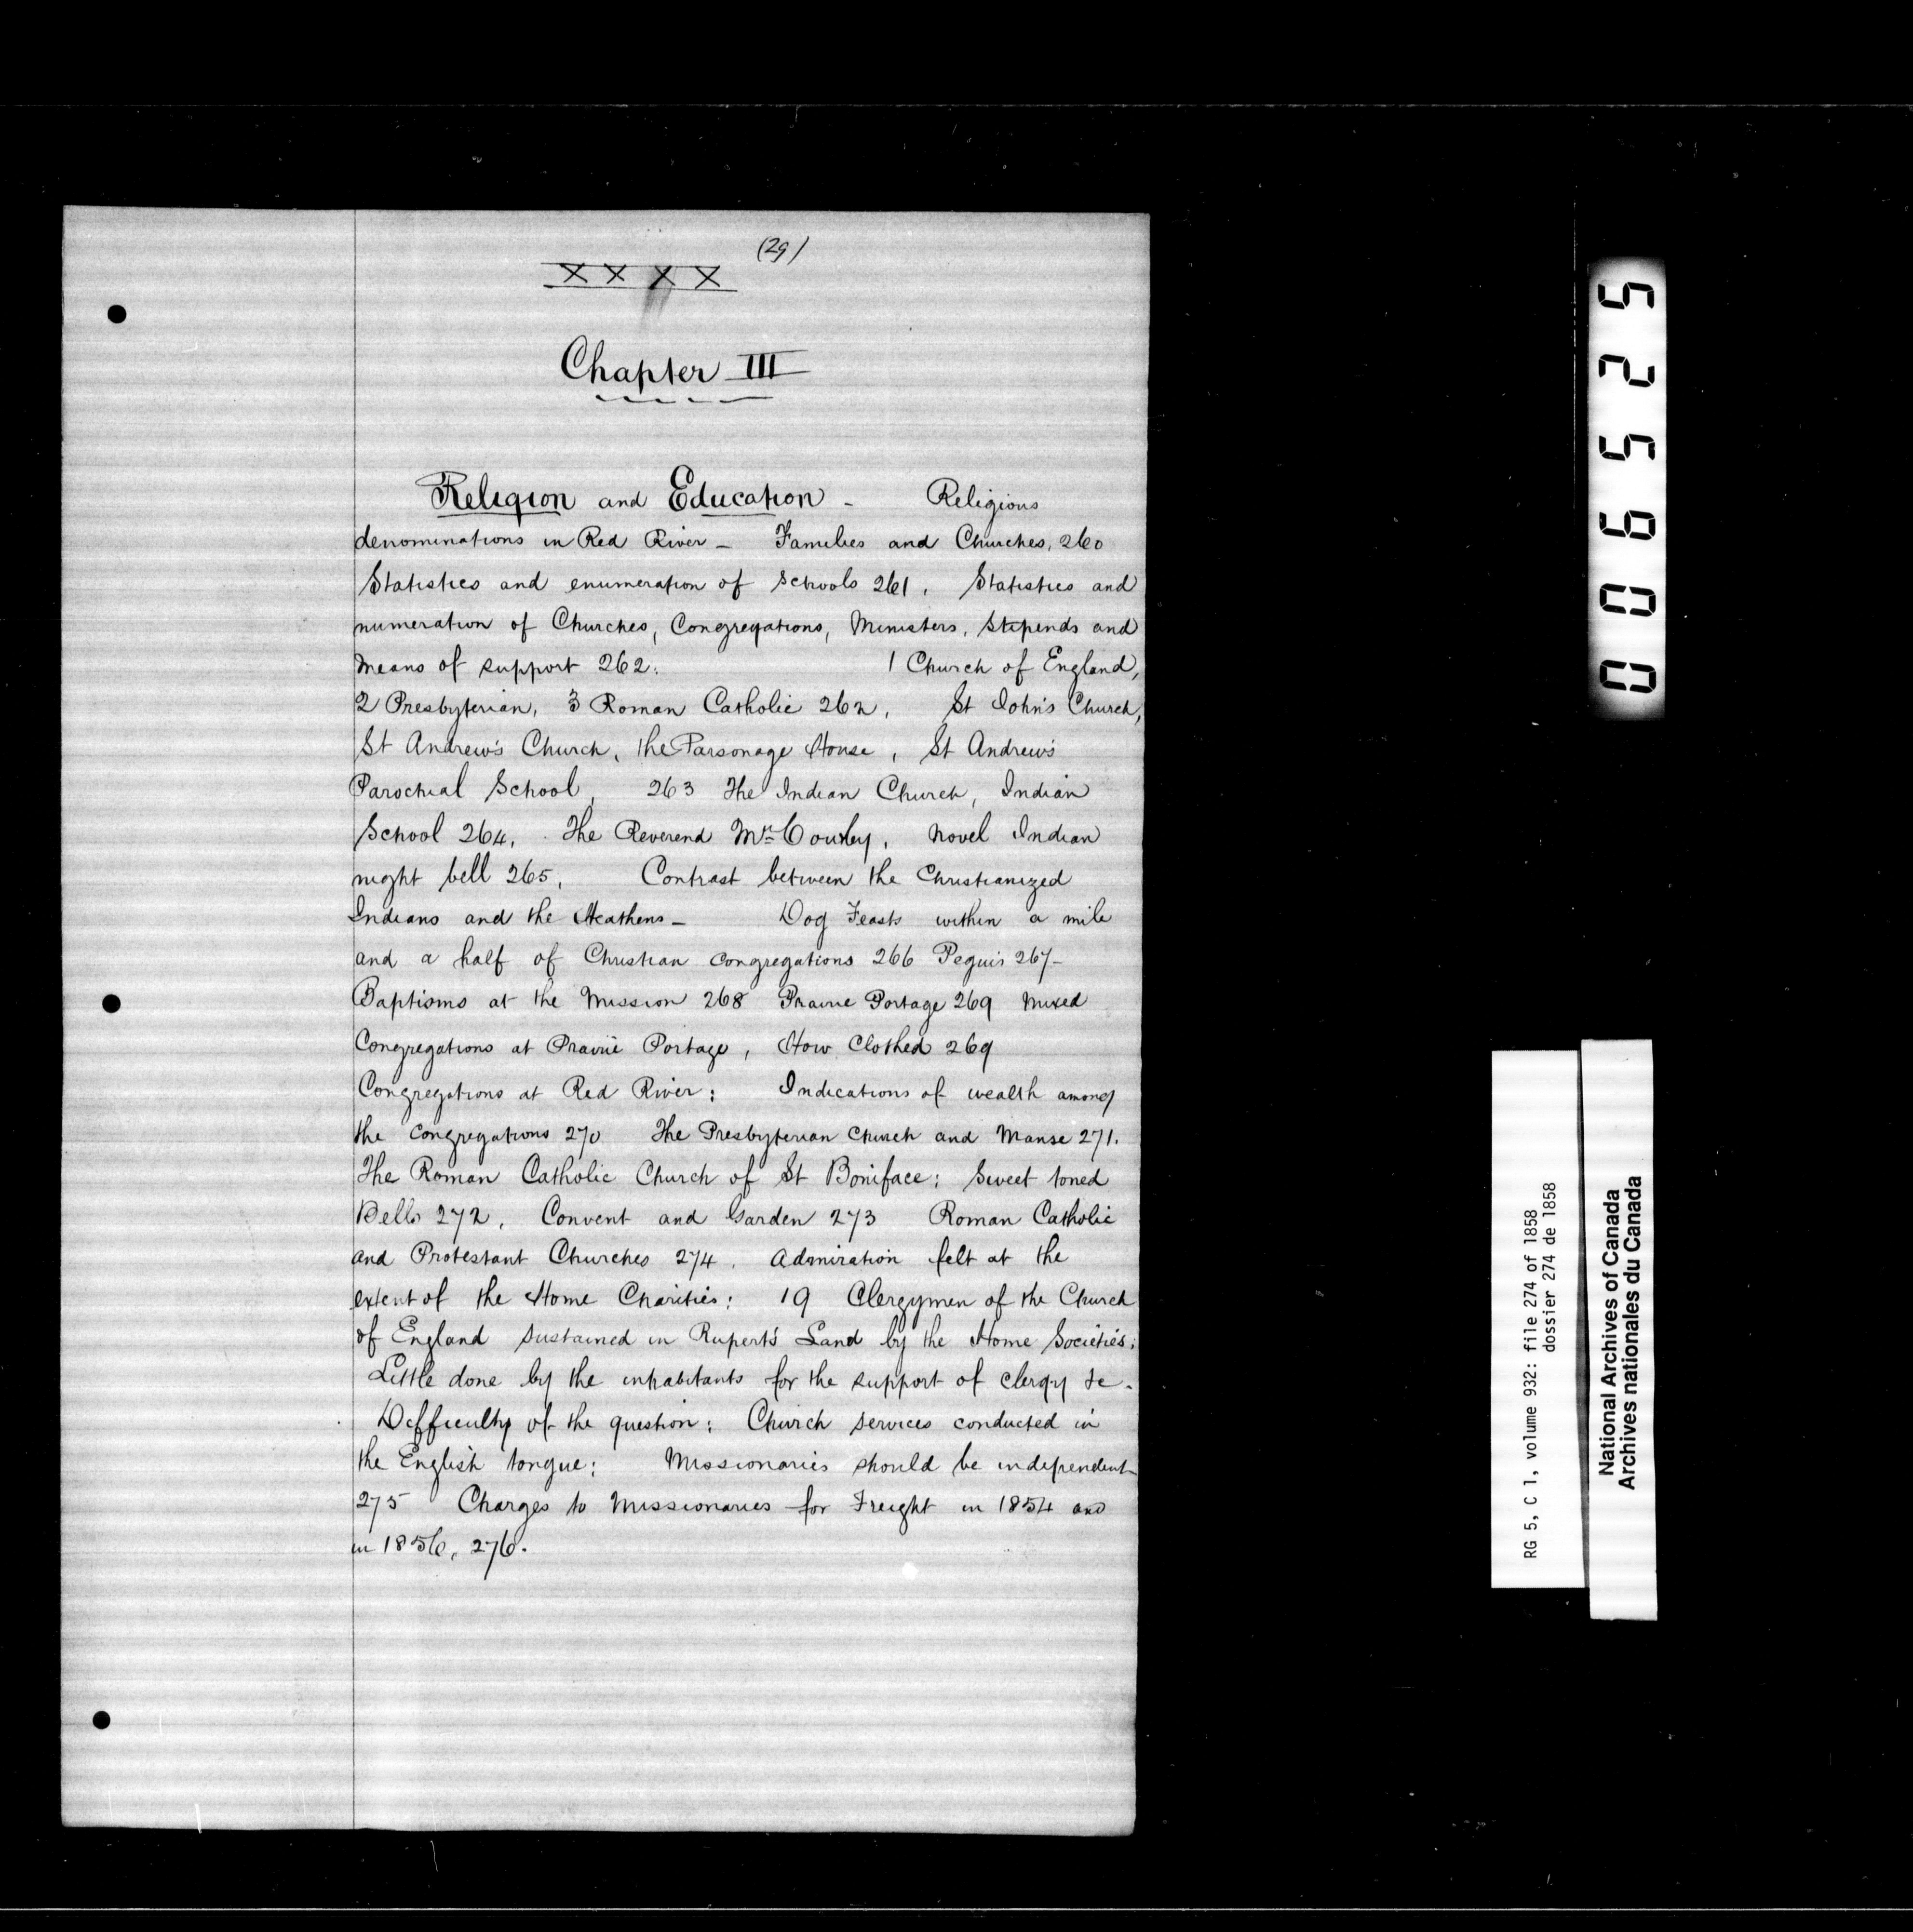 (29)
XXXX
Chapter III
Religion and Education - Religious
denominations in Red River - Families and Churches, 260
Statistics and enumeration of schools 261, Statistics and
numeration of Churches, Congregations, Ministers, Stipends and
means of support 262. 1 Church of England,
2 Presbyterian, 3 Roman Catholic 262, St John's Church,
St Andrew's Church, the Parsonage House, St Andrew's
Parochial School, 263 The Indian Church, Indian
School 264, The Reverend Mr Cowley, Novel Indian
night bell 265, Contrast between the Christianized
Indians and the Heathens - Dog Feasts within a mile
and a half of Christian congregations 266 Peguis 267-
Baptisms at the Mission 268 Prairie Portage 269 Mixed
Congregations at Prairie Portage, How Clothed 269
Congregations at Red River: Indications of wealth among
the congregations 270 The Presbyterian Church and Manse 271.
The Roman Catholic Church of St Boniface; Sweet toned
Bells 272, Convent and Garden 273 Roman Catholic
and Protestant Churches 274, Admiration felt at the
extent of the Home Charities: 19 Clergymen of the Church
of England sustained in Rupert's Land by the Home Societies;
Little done by the inhabitants for the support of clergy &c.
Difficulty of the question: Church services conducted in
the English tongue: Missionaries should be independent
275 Charges to Missionaries for Freight in 1854 and
in 1856, 276.
006525
RG 5, C 1, volume 932: file 274 of 1858
dossier 274 de 1858
National Archives of Canada
Archives nationales du Canada